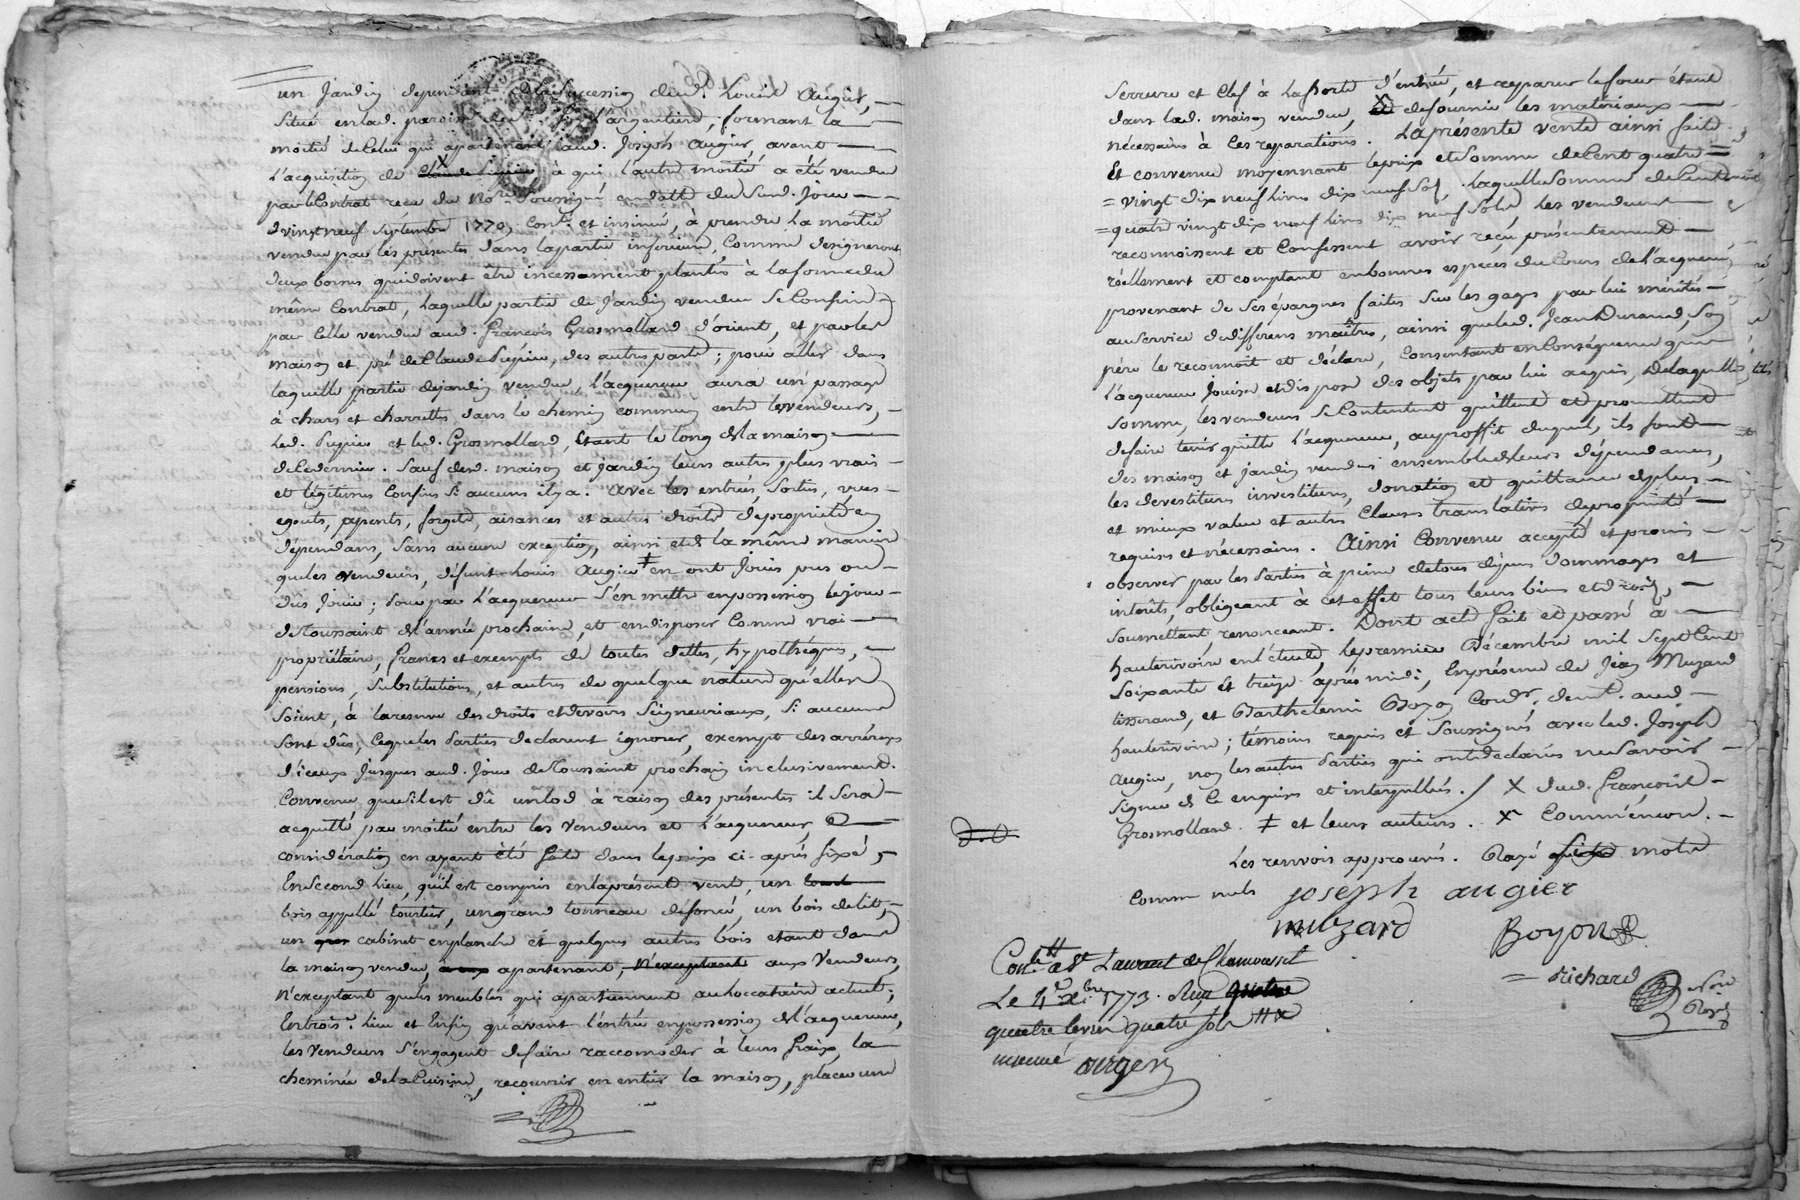 un Jardin dependant de la succession dud. Louis Augier,
situé en lad. paroisse de L'argentiere, formant la
moitié de celui qui apartenoit aud. Joseph Augier, avant
L'acquisition de X Claude Pupier à qui l'autre moitié a été vendue
par le Contrat reçu du Nore. soussigné en datte du Sund. Jour
de vingt neuf septembre 1770, Conlé. et insinué, à prendre la moitié
vendue par les présentes dans la partie inferieure, comme designeront
deux bornes qui doivent être incessament plantés à la forme du
même Contrat, Laquelle partie de Jardin vendue Se Confine
par Celle vendue aud. François Grosmolland d'orient, et par les
maison et pré de Claude Pupier, des autres parts ; pour aller dans
laquelle partie de jardin vendue, l'acquereur aura un passage
à chars et charrettes dans le chemin commun entre les vendeurs,
Led. Pupier et led. Grosmolland, étant le long de la maison
de ce dernier. Sauf desd. maison et jardin leurs autres plus vrais
et légitimes Confins Si aucuns il y a. Avec les entrées, Sorties, vues
egouts, apents, forgets, aisances et autres droits de proprieté en
dépendans, Sans aucune exception, ainsi et de la même maniere
que les vendeurs, défunt Louis Augier ‡ en ont Joui pus ou
dûs Jouir ; pour par L'acquereur S'en mettre en possession le jour
de Toussaint de l'année prochaine, et en disposer Comme vrai
propriétaire, francs et exempts de toutes dettes, hypothéques,
pensions, Substitutions, et autres de quelque nature qu'elles
Soient, à la reserve des droits et devoirs Seigneuriaux, Si aucuns
Sont dûs, lesqueles Parties declarent ignorer, exempt des arrérages
d'iceux jusques aud. Jour de Toussaint prochain inclusivement.
Convenu que s'il est dû un lod à raison des présentes il Sera
acquitté par moitié entre les vendeurs et l'acquereur,
considération en ayant été faite dans le prix ci-après fixé ;
En Second Lieu, qu'il est compris en la présente vente, un
bois appellé tourtier, un grand tonneau defoncé, un bois de lit,
un cabinet en planche et quelques autres bois etant dans
la maison vendue, apartenant, n'exceptant aux Vendeurs,
N'exceptant que les meubles qui apartiennent au Loccataire actuel ;
En troise. Lieu et Enfin qu'avant l'entrée en possession de l'acquereur,
les Vendeurs S'engagent de faire raccomoder à leurs fraix, la
cheminée de la Cuisine, recouvrir en entier la maison, placer une
Serrure et Clef à La porte d'entrée, et reparer le four étant
dans lad. maison vendue, X et de fournir les matériaux
nécessaires à Ces reparations. La présente vente ainsi faite
Et convenue moyennant le prix et Somme de Cent quatre
= vingt dix neuf Livres dix neuf Sols, Laquelle Somme de Cent
= quatre vingt dix neuf Livres dix neuf Sols Les vendeurs
reconnoissent et Confessent avoir reçu présentement
réellement et comptant en bonnes especes du Cours de L'acquereur
provenant de Ses épargnes faites Sur les gages par lui mérités
au Service de differens maîtres, ainsi que led. Jean Durand, Son
père le reconnoît et déclare, Consentant en Conséquence que
L'acquereur Jouisse et dispose des objets par lui acquis, De laquelle
Somme, les vendeurs Se Contentent quittent et promettent
de faire tenir quitte l'acquereur, au proffit duquel, ils font
des maison et jardin vendus ensemble de leurs dépendances,
les devestitures investitures, donation et quittance de plus
et mieux value et autres Clauses translatives de propriété
requises et nécessaires. Ainsi Convenu accepté et promis
observer par les Parties à peine de tous depens dommages et
interêts, obligeant à cet effet tous leurs biens et droits,
Soumettant, renonceant. Dont acte fait et passé à
hauterivoire en l'étude, le premier Décembre mil Sept Cent
Soixante et treize après midi, En présence de Jean Muzard
tisserand, et Barthélemi Boyon Cordr. demt. aud.
hauterivoire ; temoins requis et Soussignés avec led. Joseph
Augier, non les autres Parties qui ont déclarés ne Savoir
Signer de Ce enquises et interpellées. / X dud. François
Grosmolland. ‡ et leurs auteurs. X Commencon.
Les renvois approuvés. Rayé motes
comme nuls joseph augier
muzard Boyon
Richard
Conlé à St Laurent de Chamousset
Le 4e Xbre 1773. Reçu
quatre livres quatre sols
insinué auger